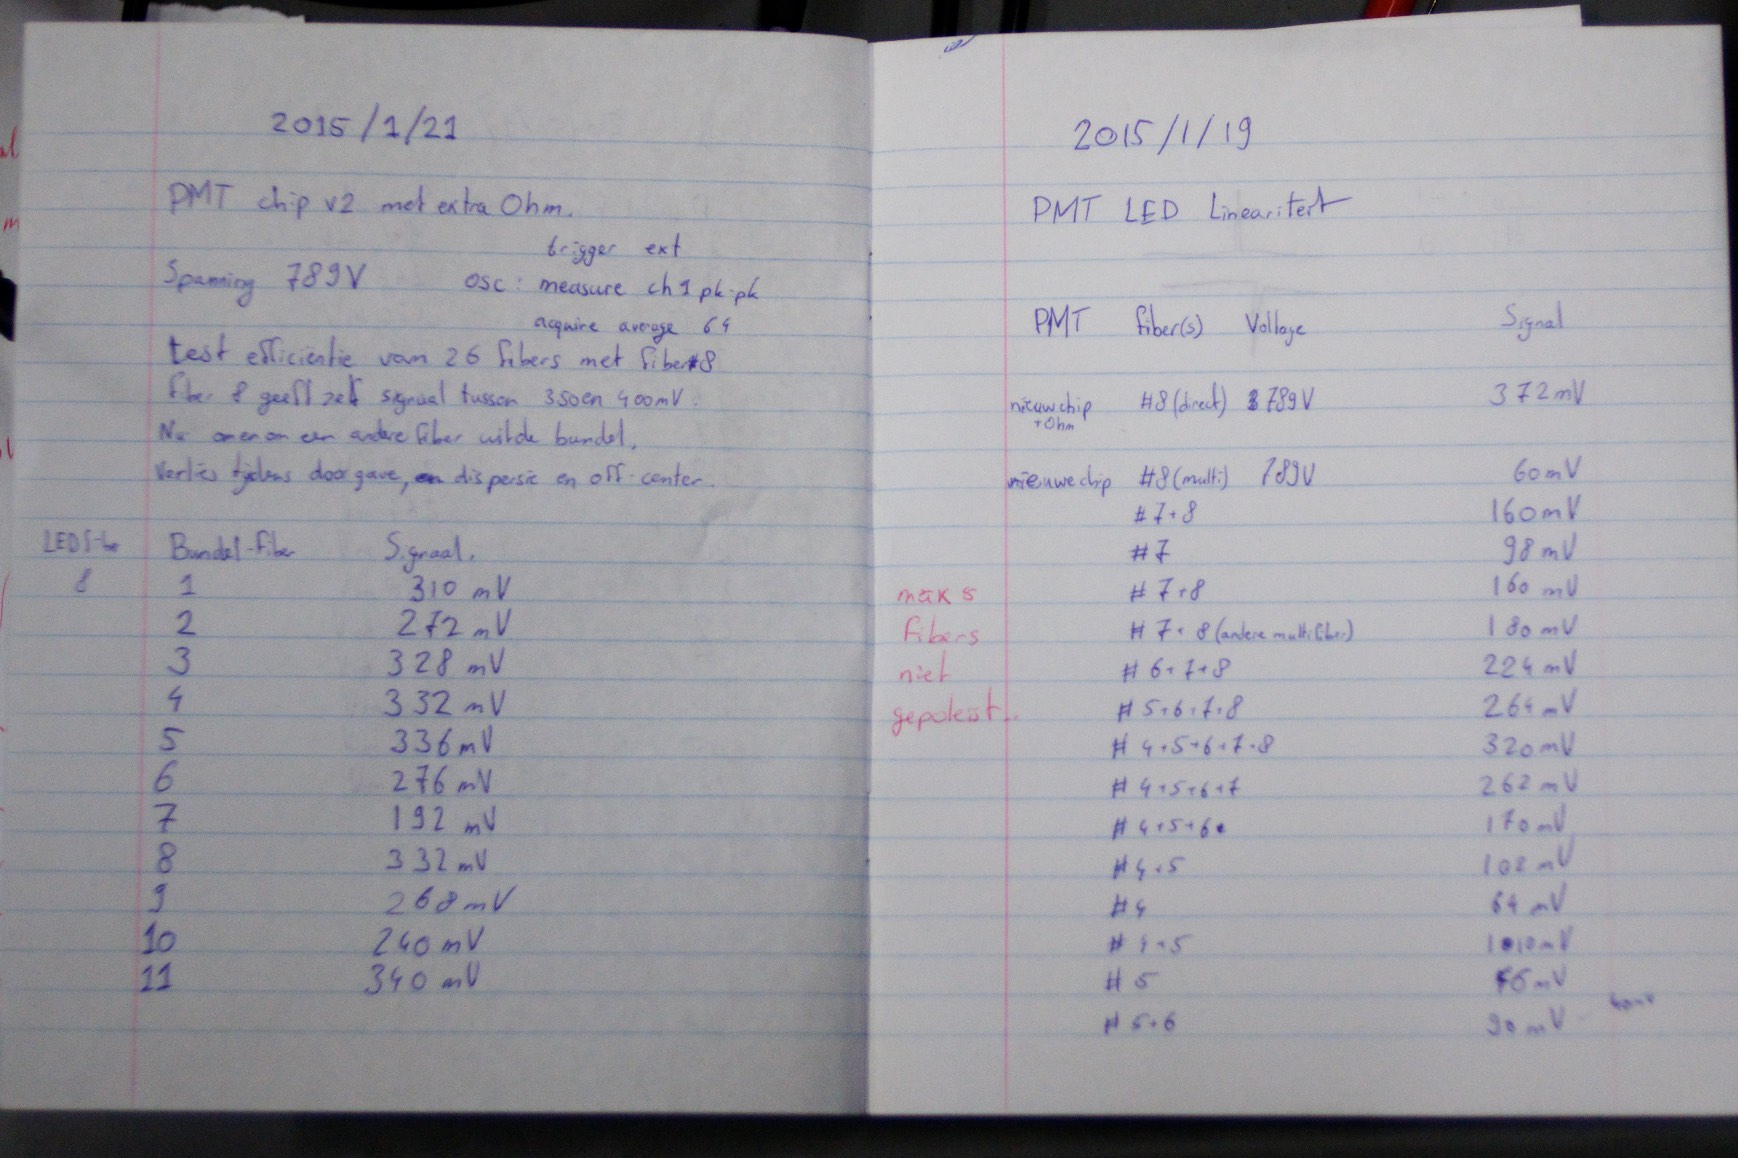 2015/1/21
PMT chip v2 met extra Ohm.
trigger ext
Spanning 789V osc: measure ch1 pk-pk
acquire average 64
test efficientie van 26 fibers met fiber#8
fiber 8 geeft zelf signaal tussen 350 en 400mV.
Nu een andere fiber uit de bundel.
Verlies tijdens doorgave, dispersie en off-center.
LED Bundel-fiber Signaal.
8 1 310 mV
2 272 mV
3 328 mV
4 332 mV
5 336 mV
6 276 mV
7 192 mV
8 332 mV
9 268 mV
10 240 mV
11 340 mV
2015/1/19
PMT LED Lineariteit
PMT fiber(s) Voltage Signal
nieuw chip #8 (direct) 789V 372 mV
+Ohm
nieuwe chip #8 (multi) 789V 60 mV
#7+8 160 mV
#7 98 mV
#7+8 160 mV
#7+8 (andere multifiber) 180 mV
#6+7+8 224 mV
#5+6+7+8 264 mV
#4+5+6+7+8 320 mV
#4+5+6+7 262 mV
#4+5+6 170 mV
#4+5 102 mV
#4 64 mV
#4+5 mV
#5 mV
#5+6 90 mV
max 5
fibers
niet